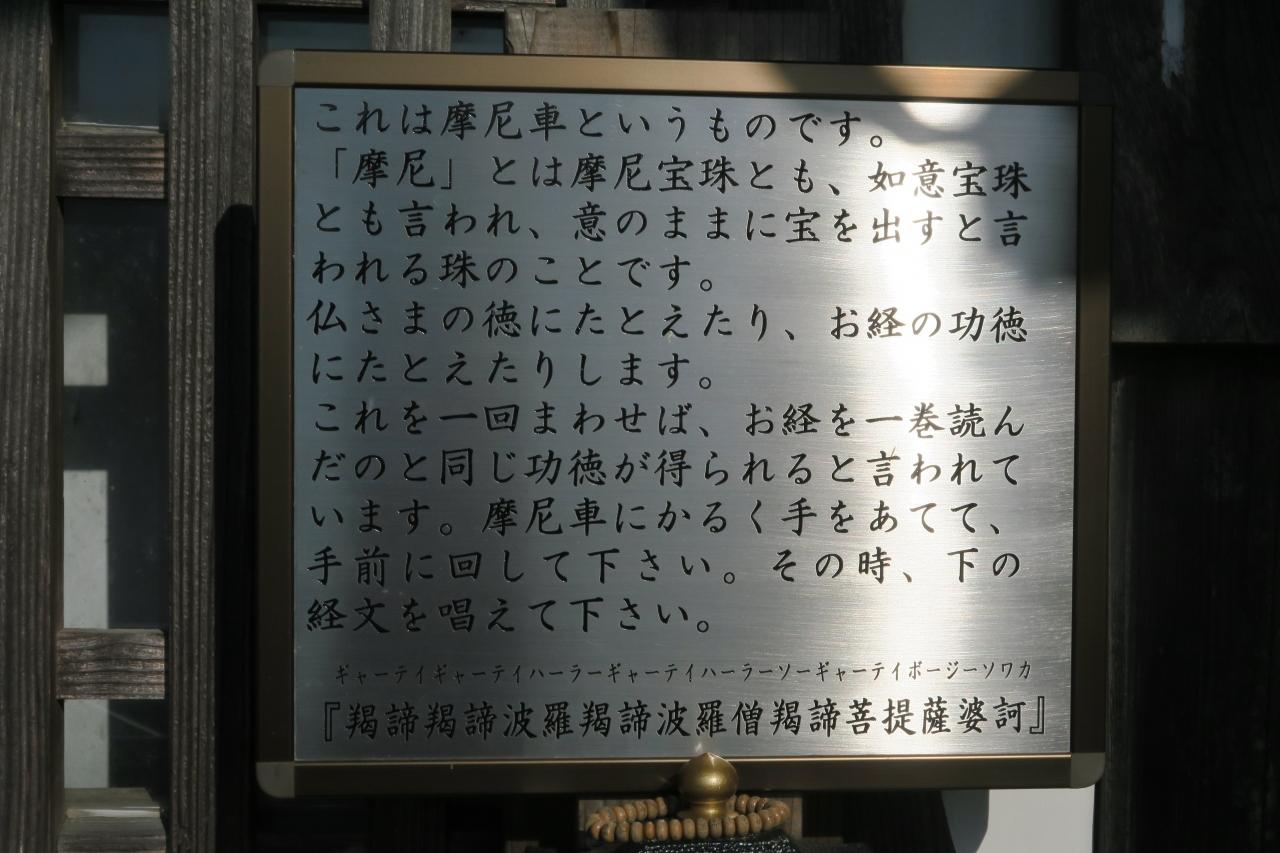 これは摩尼車というものです。
「摩尼」とは摩尼宝珠とも、如意宝珠
とも言われ、意のままに宝を出すと言
われる珠のことです。
仏さまの徳にたとえたり、お経の功徳
にたとえたりします。
これを一回まわせば、お経を一巻読ん
だのと同じ功徳が得られると言われて
います。摩尼車にかるく手をあてて、
手前に回して下さい。その時、下の
経文を唱えて下さい。
ギャーテイギャーテイハーラーギャーテイハーラーソーギャーテイボージーソワカ
『羯諦羯諦波羅羯諦波羅僧羯諦菩提薩婆訶』